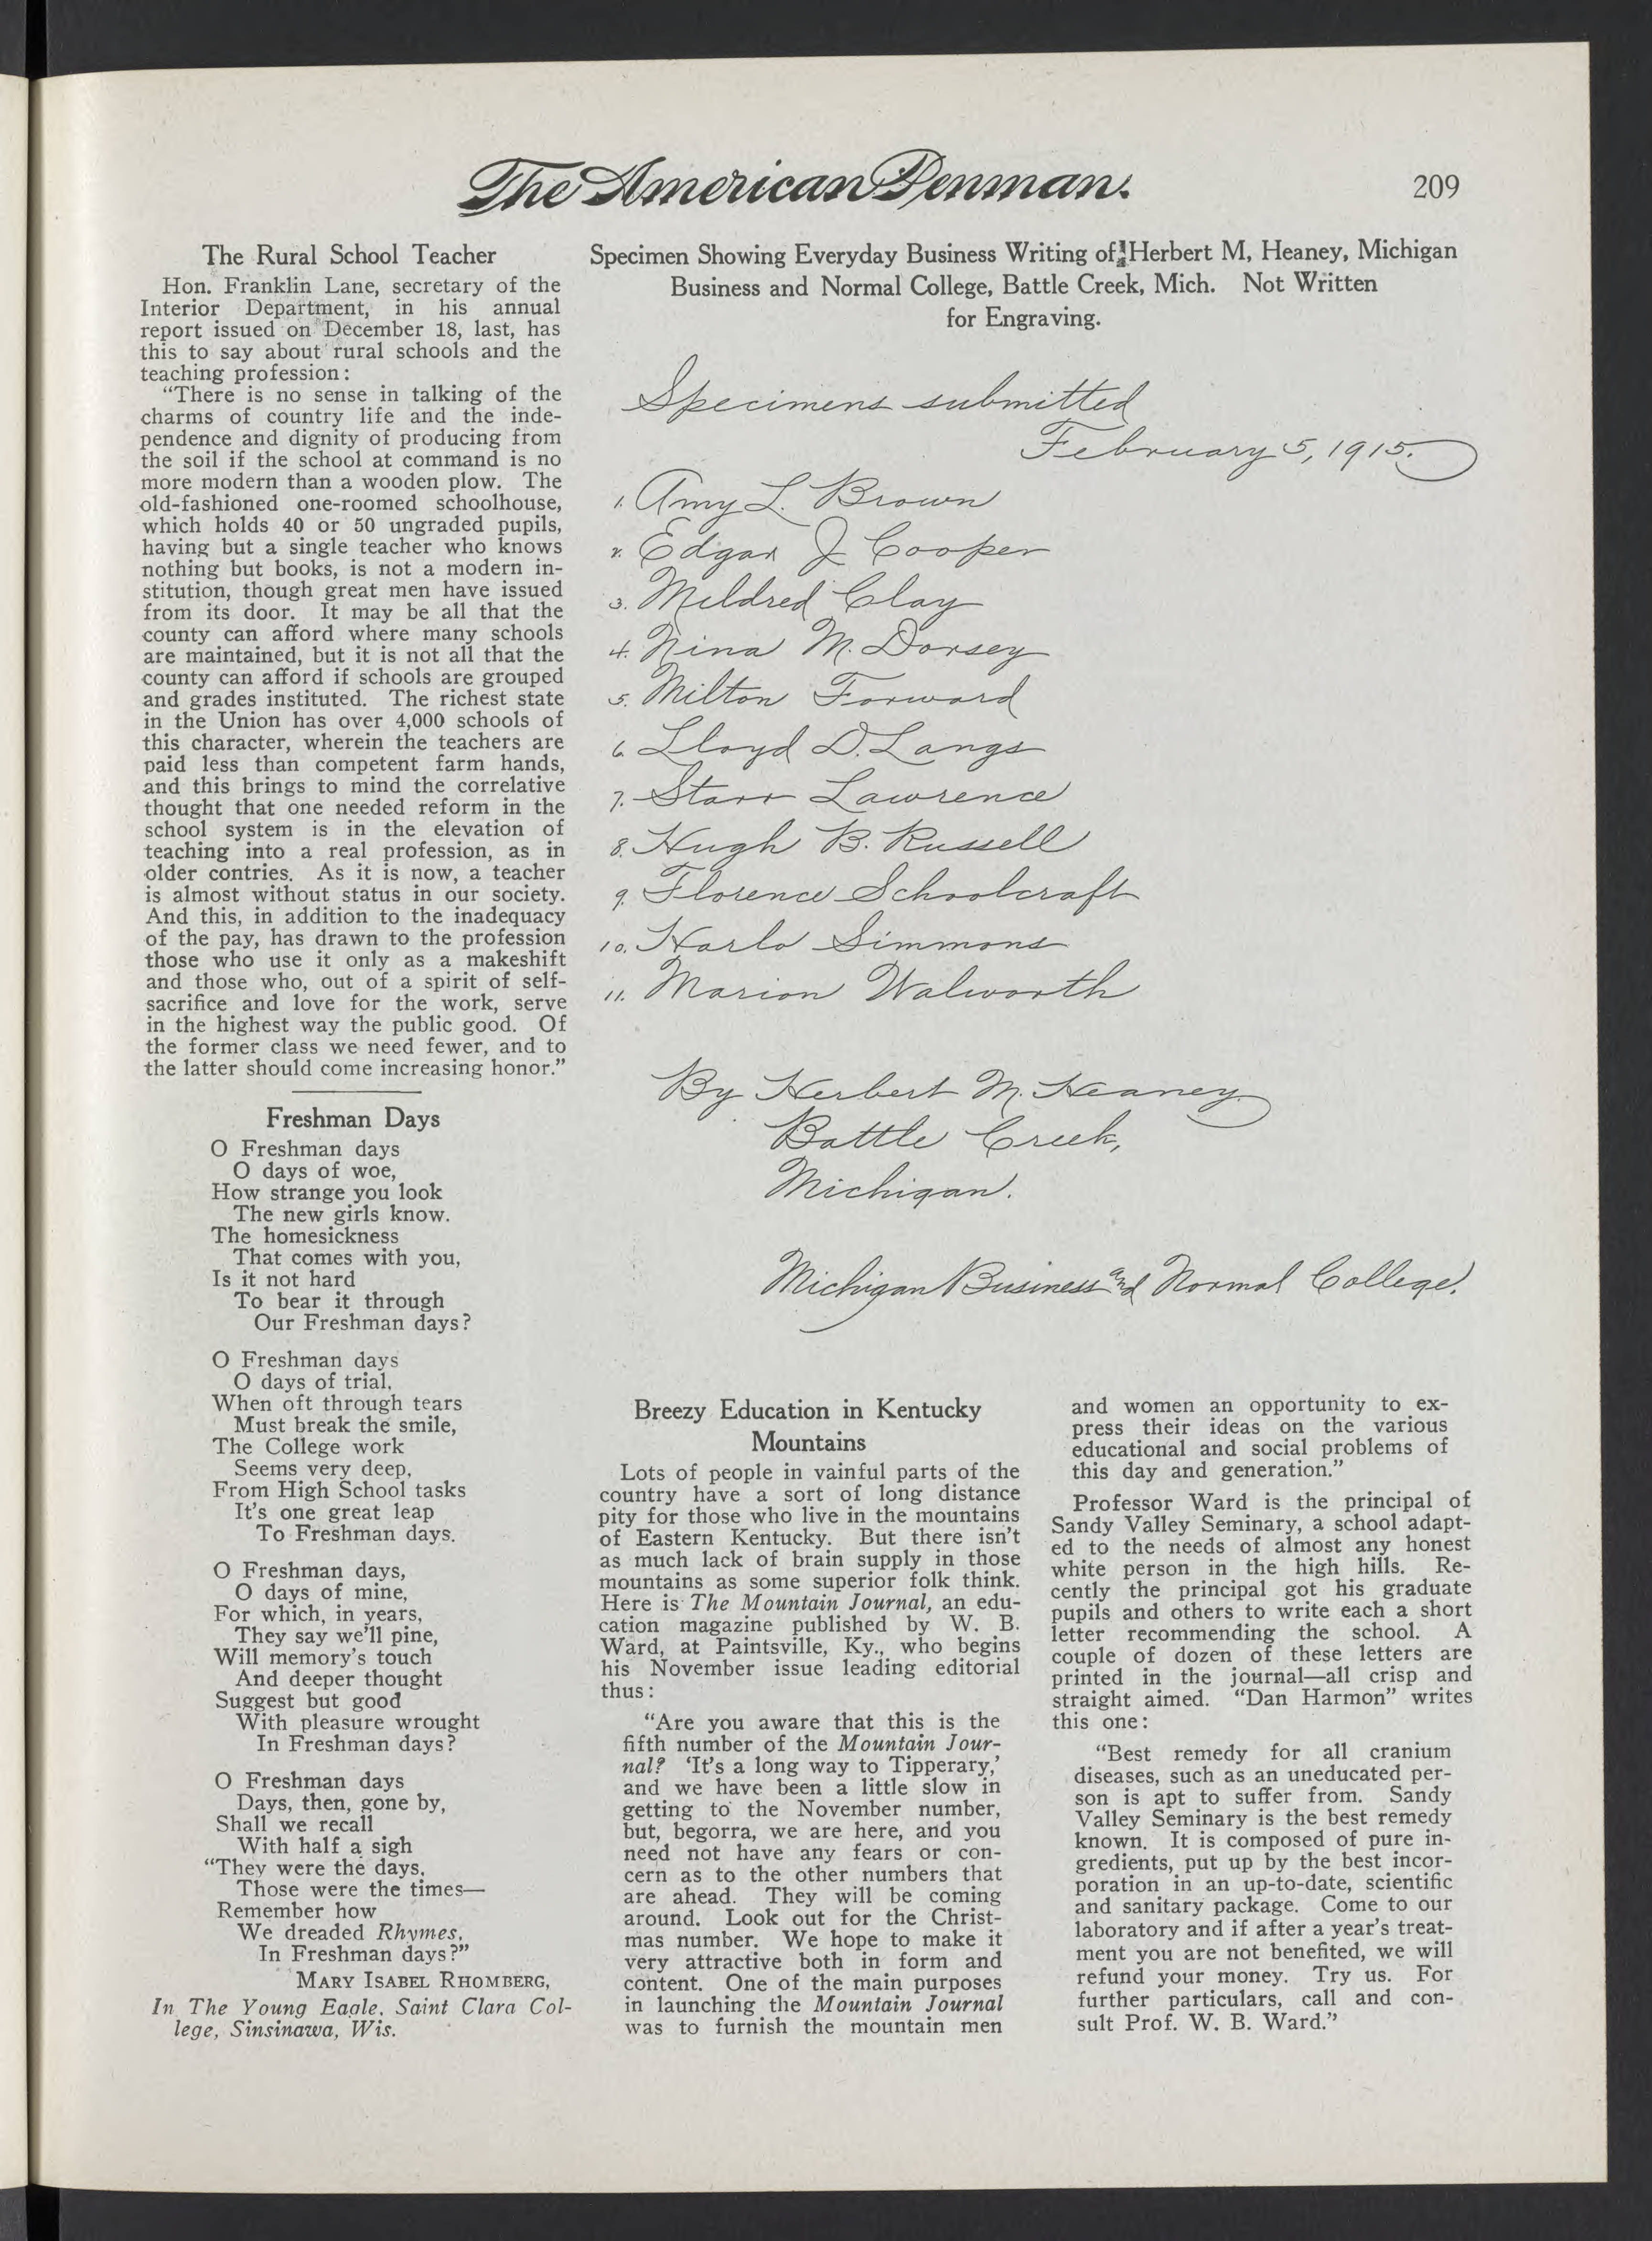 The American Penman.
209
The Rural School Teacher
Hon. Franklin Lane, secretary of the
Interior Department, in his annual
report issued on December 18, last, has
this to say about rural schools and the
teaching profession:
“There is no sense in talking of the
charms of country life and the inde-
pendence and dignity of producing from
the soil if the school at command is no
more modern than a wooden plow. The
old-fashioned one-roomed schoolhouse,
which holds 40 or 50 ungraded pupils,
having but a single teacher who knows
nothing but books, is not a modern in-
stitution, though great men have issued
from its door. It may be all that the
county can afford where many schools
are maintained, but it is not all that the
county can afford if schools are grouped
and grades instituted. The richest state
in the Union has over 4,000 schools of
this character, wherein the teachers are
paid less than competent farm hands,
and this brings to mind the correlative
thought that one needed reform in the
school system is in the elevation of
teaching into a real profession, as in
older contries. As it is now, a teacher
is almost without status in our society.
And this, in addition to the inadequacy
of the pay, has drawn to the profession
those who use it only as a makeshift
and those who, out of a spirit of self-
sacrifice and love for the work, serve
in the highest way the public good. Of
the former class we need fewer, and to
the latter should come increasing honor.”
Freshman Days
O Freshman days
O days of woe,
How strange you look
The new girls know.
The homesickness
That comes with you,
Is it not hard
To bear it through
Our Freshman days?
O Freshman days
O days of trial,
When oft through tears
Must break the smile,
The College work
Seems very deep,
From High School tasks
It's one great leap
To Freshman days.
O Freshman days,
O days of mine,
For which, in years,
They say we'll pine,
Will memory's touch
And deeper thought
Suggest but good
With pleasure wrought
In Freshman days?
O Freshman days
Days, then, gone by,
Shall we recall
With half a sigh
“They were the days,
Those were the times—
Remember how
We dreaded Rhymes,
In Freshman days?”
MARY ISABEL RHOMBERG,
In The Young Eagle, Saint Clara Col-
lege, Sinsinawa, Wis.
Specimen Showing Everyday Business Writing of Herbert M, Heaney, Michigan
Business and Normal College, Battle Creek, Mich. Not Written
for Engraving.
Specimens submitted
February 5, 1915.
1. Amy L. Brown
2. Edgar J Cooper
3. Mildred Clay
4. Nina M. Dorsey
5. Milton Forward
6. Lloyd D. Langs
7. Starr Lawrence
8. Hugh B. Russell
9. Florence Schoolcraft
10. Harlo Simmons
11. Marion Walworth
By Herbert M. Heaney
Battle Creek,
Michigan.
Michigan Business and Normal College.
Breezy Education in Kentucky
Mountains
Lots of people in vainful parts of the
country have a sort of long distance
pity for those who live in the mountains
of Eastern Kentucky. But there isn't
as much lack of brain supply in those
mountains as some superior folk think.
Here is The Mountain Journal, an edu-
cation magazine published by W. B.
Ward, at Paintsville, Ky., who begins
his November issue leading editorial
thus:
“Are you aware that this is the
fifth number of the Mountain Jour-
nal? ‘It's a long way to Tipperary,’
and we have been a little slow in
getting to the November number,
but, begorra, we are here, and you
need not have any fears or con-
cern as to the other numbers that
are ahead. They will be coming
around. Look out for the Christ-
mas number. We hope to make it
very attractive both in form and
content. One of the main purposes
in launching the Mountain Journal
was to furnish the mountain men
and women an opportunity to ex-
press their ideas on the various
educational and social problems of
this day and generation.”
Professor Ward is the principal of
Sandy Valley Seminary, a school adapt-
ed to the needs of almost any honest
white person in the high hills. Re-
cently the principal got his graduate
pupils and others to write each a short
letter recommending the school. A
couple of dozen of these letters are
printed in the journal—all crisp and
straight aimed. “Dan Harmon” writes
this one:
“Best remedy for all cranium
diseases, such as an uneducated per-
son is apt to suffer from. Sandy
Valley Seminary is the best remedy
known. It is composed of pure in-
gredients, put up by the best incor-
poration in an up-to-date, scientific
and sanitary package. Come to our
laboratory and if after a year's treat-
ment you are not benefited, we will
refund your money. Try us. For
further particulars, call and con-
sult Prof. W. B. Ward.”